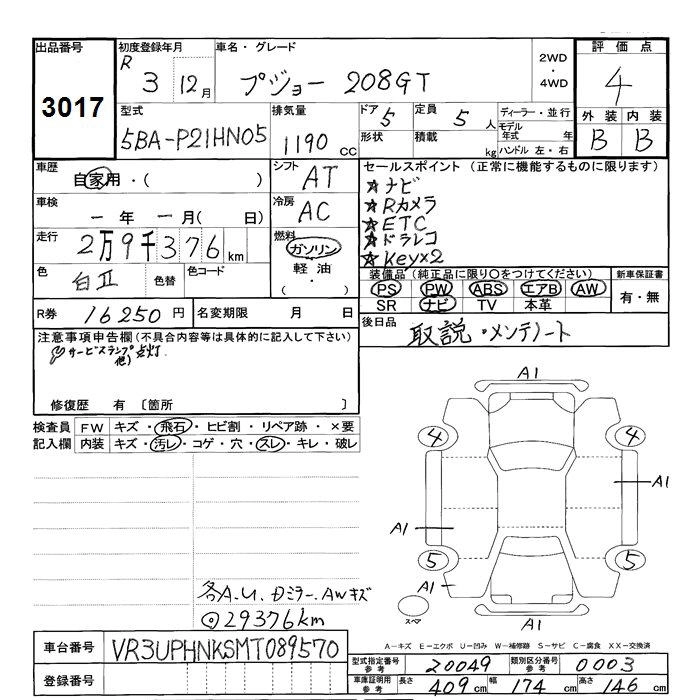 出品番号
3017
初度登録年月
R 3 12月
車名・グレード
プジョー 208GT
2WD
・
4WD
評価点
4
外装 内装
B B
型式
5BA-P21HN05
排気量
1190 cc
ドア 5
形状
定員 5 人
積載 kg
ディーラー・並行
モデル年式 年
ハンドル 左・右
車歴
自家用・( )
シフト
AT
車検
一年一月( 日)
冷房
AC
走行
2万9千376 km
燃料
ガソリン
軽油
( ・ )
色
白II
色替
色コード
セールスポイント (正常に機能するものに限ります)
☆ナビ
☆Rカメラ
☆ETC
☆ドラレコ
☆Key×2
装備品(純正品に限り○をつけてください)
PS PW ABS エアB AW
SR ナビ TV 本革
新車保証書
有・無
R券 16250 円
名変期限 月 日
後日品
取説・メンテノート
注意事項申告欄(不具合内容等は具体的に記入して下さい)
サービスランプ点灯.
他)
修復歴 有 〔箇所 〕
検査員
記入欄
FW キズ・飛石・ヒビ割・リペア跡・×要
内装 キズ・汚レ・コゲ・穴・スレ・キレ・破レ
A1
4 4
A1
A1
5 5
A1
スペア
A1
各A.U.Dミラー.AWキズ
◎29376km
A-キズ E-エクボ U-凹み W-補修跡 S-サビ C-腐食 XX-交換済
車台番号 VR3UPHNKSMT089570
登録番号
型式指定番号 参考 20049
類別区分番号 参考 0003
車庫証明用 参考 長さ 409cm 幅 174cm 高さ 146cm